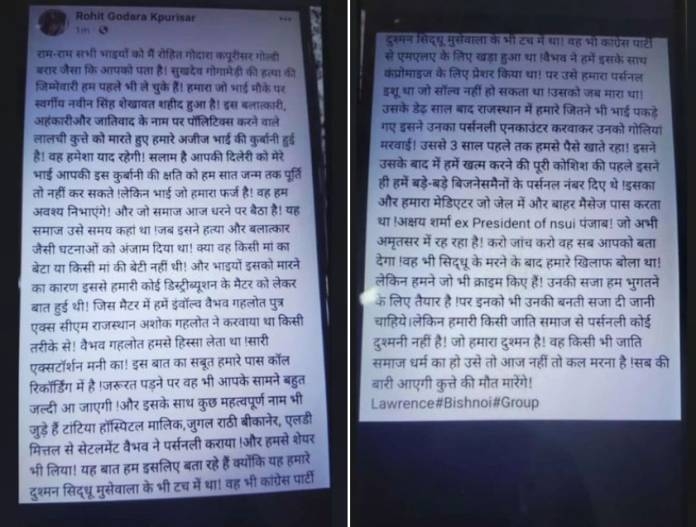 Rohit Godara Kpurisar
1m
राम-राम सभी भाइयों को मैं रोहित गोदारा कपूरीसर गोल्डी
बरार जैसा कि आपको पता है! सुखदेव गोगामेड़ी की हत्या की
जिम्मेवारी हम पहले भी ले चुके हैं! हमारा जो भाई मौके पर
स्वर्गीय नवीन सिंह शेखावत शहीद हुआ है! इस बलात्कारी,
अहंकारीऔर जातिवाद के नाम पर पॉलिटिक्स करने वाले
लालची कुत्ते को मारते हुए हमारे अजीज भाई की कुर्बानी हुई
है! वह हमेशा याद रहेगी! सलाम है आपकी दिलेरी को मेरे
भाई आपकी इस कुर्बानी की क्षति को हम सात जन्म तक पूर्ति
तो नहीं कर सकते !लेकिन भाई जो हमारा फर्ज है! वह हम
अवश्य निभाएंगे! और जो समाज आज धरने पर बैठा है! यह
समाज उसे समय कहां था !जब इसने हत्या और बलात्कार
जैसी घटनाओं को अंजाम दिया था! क्या वह किसी मां का
बेटा या किसी मां की बेटी नहीं थी! और भाइयों इसको मारने
का कारण इससे हमारी कोई डिस्ट्रीब्यूशन के मैटर को लेकर
बात हुई थी! जिस मैटर में हमें इंवॉल्व वैभव गहलोत पुत्र
एक्स सीएम राजस्थान अशोक गहलोत ने करवाया था किसी
तरीके से! वैभव गहलोत हमसे हिस्सा लेता था !सारी
एक्सटॉर्शन मनी का! इस बात का सबूत हमारे पास कॉल
रिकॉर्डिंग में है !जरूरत पड़ने पर वह भी आपके सामने बहुत
जल्दी आ जाएगी !और इसके साथ कुछ महत्वपूर्ण नाम भी
जुड़े हैं टांटिया हॉस्पिटल मालिक,जुगल राठी बीकानेर, एलडी
मित्तल से सेटलमेंट वैभव ने पर्सनली कराया !और हमसे शेयर
भी लिया! यह बात हम इसलिए बता रहे हैं क्योंकि यह हमारे
दुश्मन सिद्धू मुसेवाला के भी टच में था! वह भी कांग्रेस पार्टी
दुश्मन सिद्धू मुसेवाला के भी टच में था! वह भी कांग्रेस पार्टी
से एमएलए के लिए खड़ा हुआ था !वैभव ने हमें इसके साथ
कंप्रोमाइज के लिए प्रेशर किया था! पर उसे हमारा पर्सनल
इशू था जो सॉल्व नहीं हो सकता था !उसको जब मारा था!
उसके डेढ़ साल बाद राजस्थान में हमारे जितने भी भाई पकड़े
गए इसने उनका पर्सनली एनकाउंटर करवाकर उनको गोलियां
मरवाई! उससे ३ साल पहले तक हमसे पैसे खाते रहा! इसने
उसके बाद में हमें खत्म करने की पूरी कोशिश की पहले इसने
ही हमें बड़े-बड़े बिजनेसमैनों के पर्सनल नंबर दिए थे !इसका
और हमारा मेडिएटर जो जेल में और बाहर मैसेज पास करता
था !अक्षय शर्मा ex President of nsui पंजाब! जो अभी
अमृतसर में रह रहा है! करो जांच करो वह सब आपको बता
देगा !वह भी सिद्धू के मरने के बाद हमारे खिलाफ बोला था!
लेकिन हमने जो भी क्राइम किए हैं! उनकी सजा हम भुगतने
के लिए तैयार है !पर इनको भी उनकी बनती सजा दी जानी
चाहिये।लेकिन हमारी किसी जाति समाज से पर्सनली कोई
दुश्मनी नहीं है! जो हमारा दुश्मन है! वह किसी भी जाति
समाज धर्म का हो उसे तो आज नहीं तो कल मरना है !सब की
बारी आएगी कुत्ते की मौत मारेंगे!
Lawrence#Bishnoi#Group